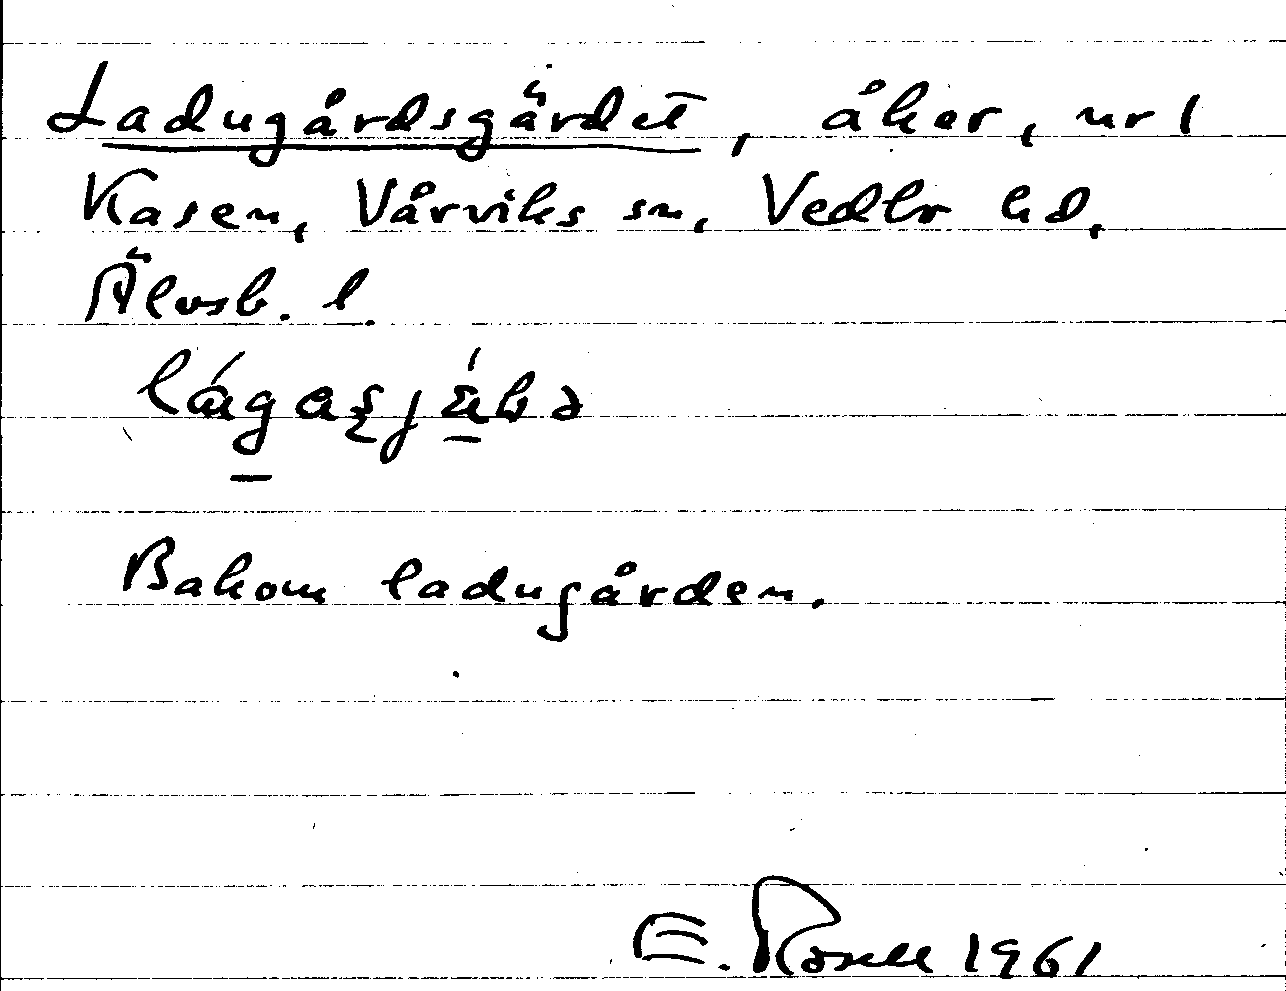 Ladugårdsgärdet, åker, nr 1
Kasen, Vårviks sn, Vedbo hd,
Älvsb. l.
Bakom ladugården.
E. Rosell 1961